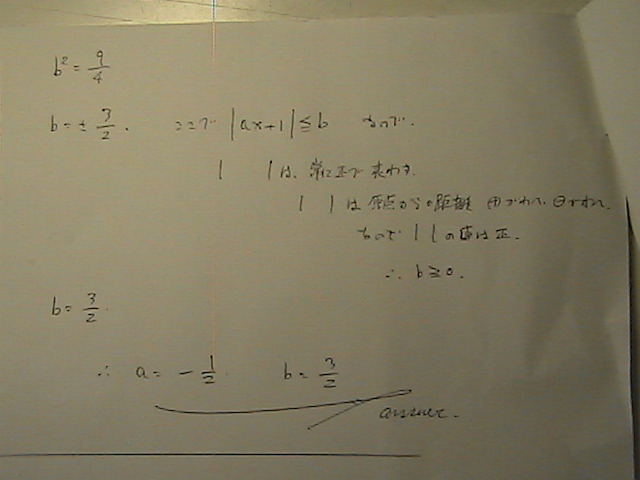 b² = 9/4
b = ± 3/2. ここで |ax+1| ≦ b なので.
| |は、常に正で表わす.
| |は原点からの距離
なので | | の値は正.
∴ b ≧ 0.
b = 3/2.
∴ a = - 1/2. b = 3/2
answer.